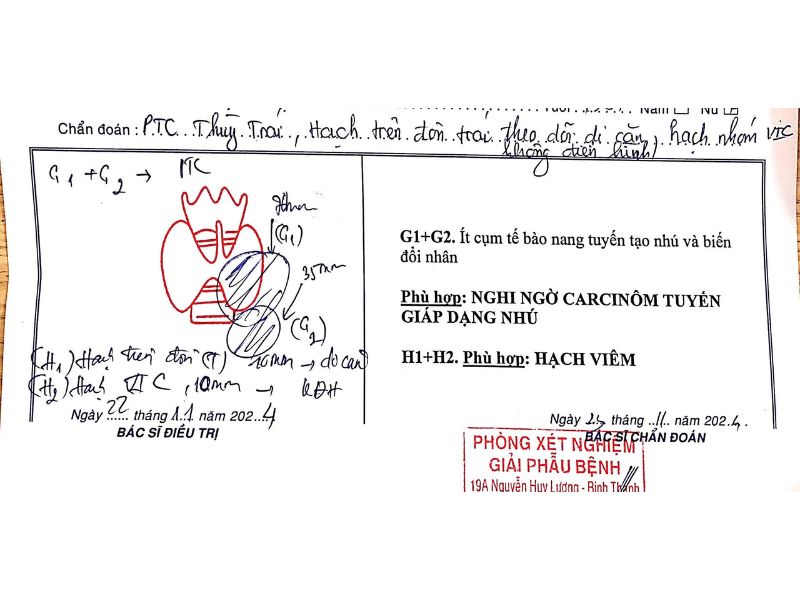 Tuổi Nam Nữ
Chẩn đoán : PTC Thùy Trái, Hạch trên đòn trái theo dõi di căn, hạch nhóm VIC
không điển hình)
G1 + G2 → PTC
(G1)
35mm
(G2)
(H1) Hạch trên đòn (T) 10mm → do can
(H2) Hạch VI C, 10mm → KĐH
Ngày 22 tháng 11 năm 2024
BÁC SĨ ĐIỀU TRỊ
G1+G2. Ít cụm tế bào nang tuyến tạo nhú và biến
đổi nhân
Phù hợp: NGHI NGỜ CARCINÔM TUYẾN
GIÁP DẠNG NHÚ
H1+H2. Phù hợp: HẠCH VIÊM
Ngày tháng 11 năm 2024.
BÁC SĨ CHẨN ĐOÁN
PHÒNG XÉT NGHIỆM
GIẢI PHẪU BỆNH
19A Nguyễn Huy Lượng - Bình Thạnh